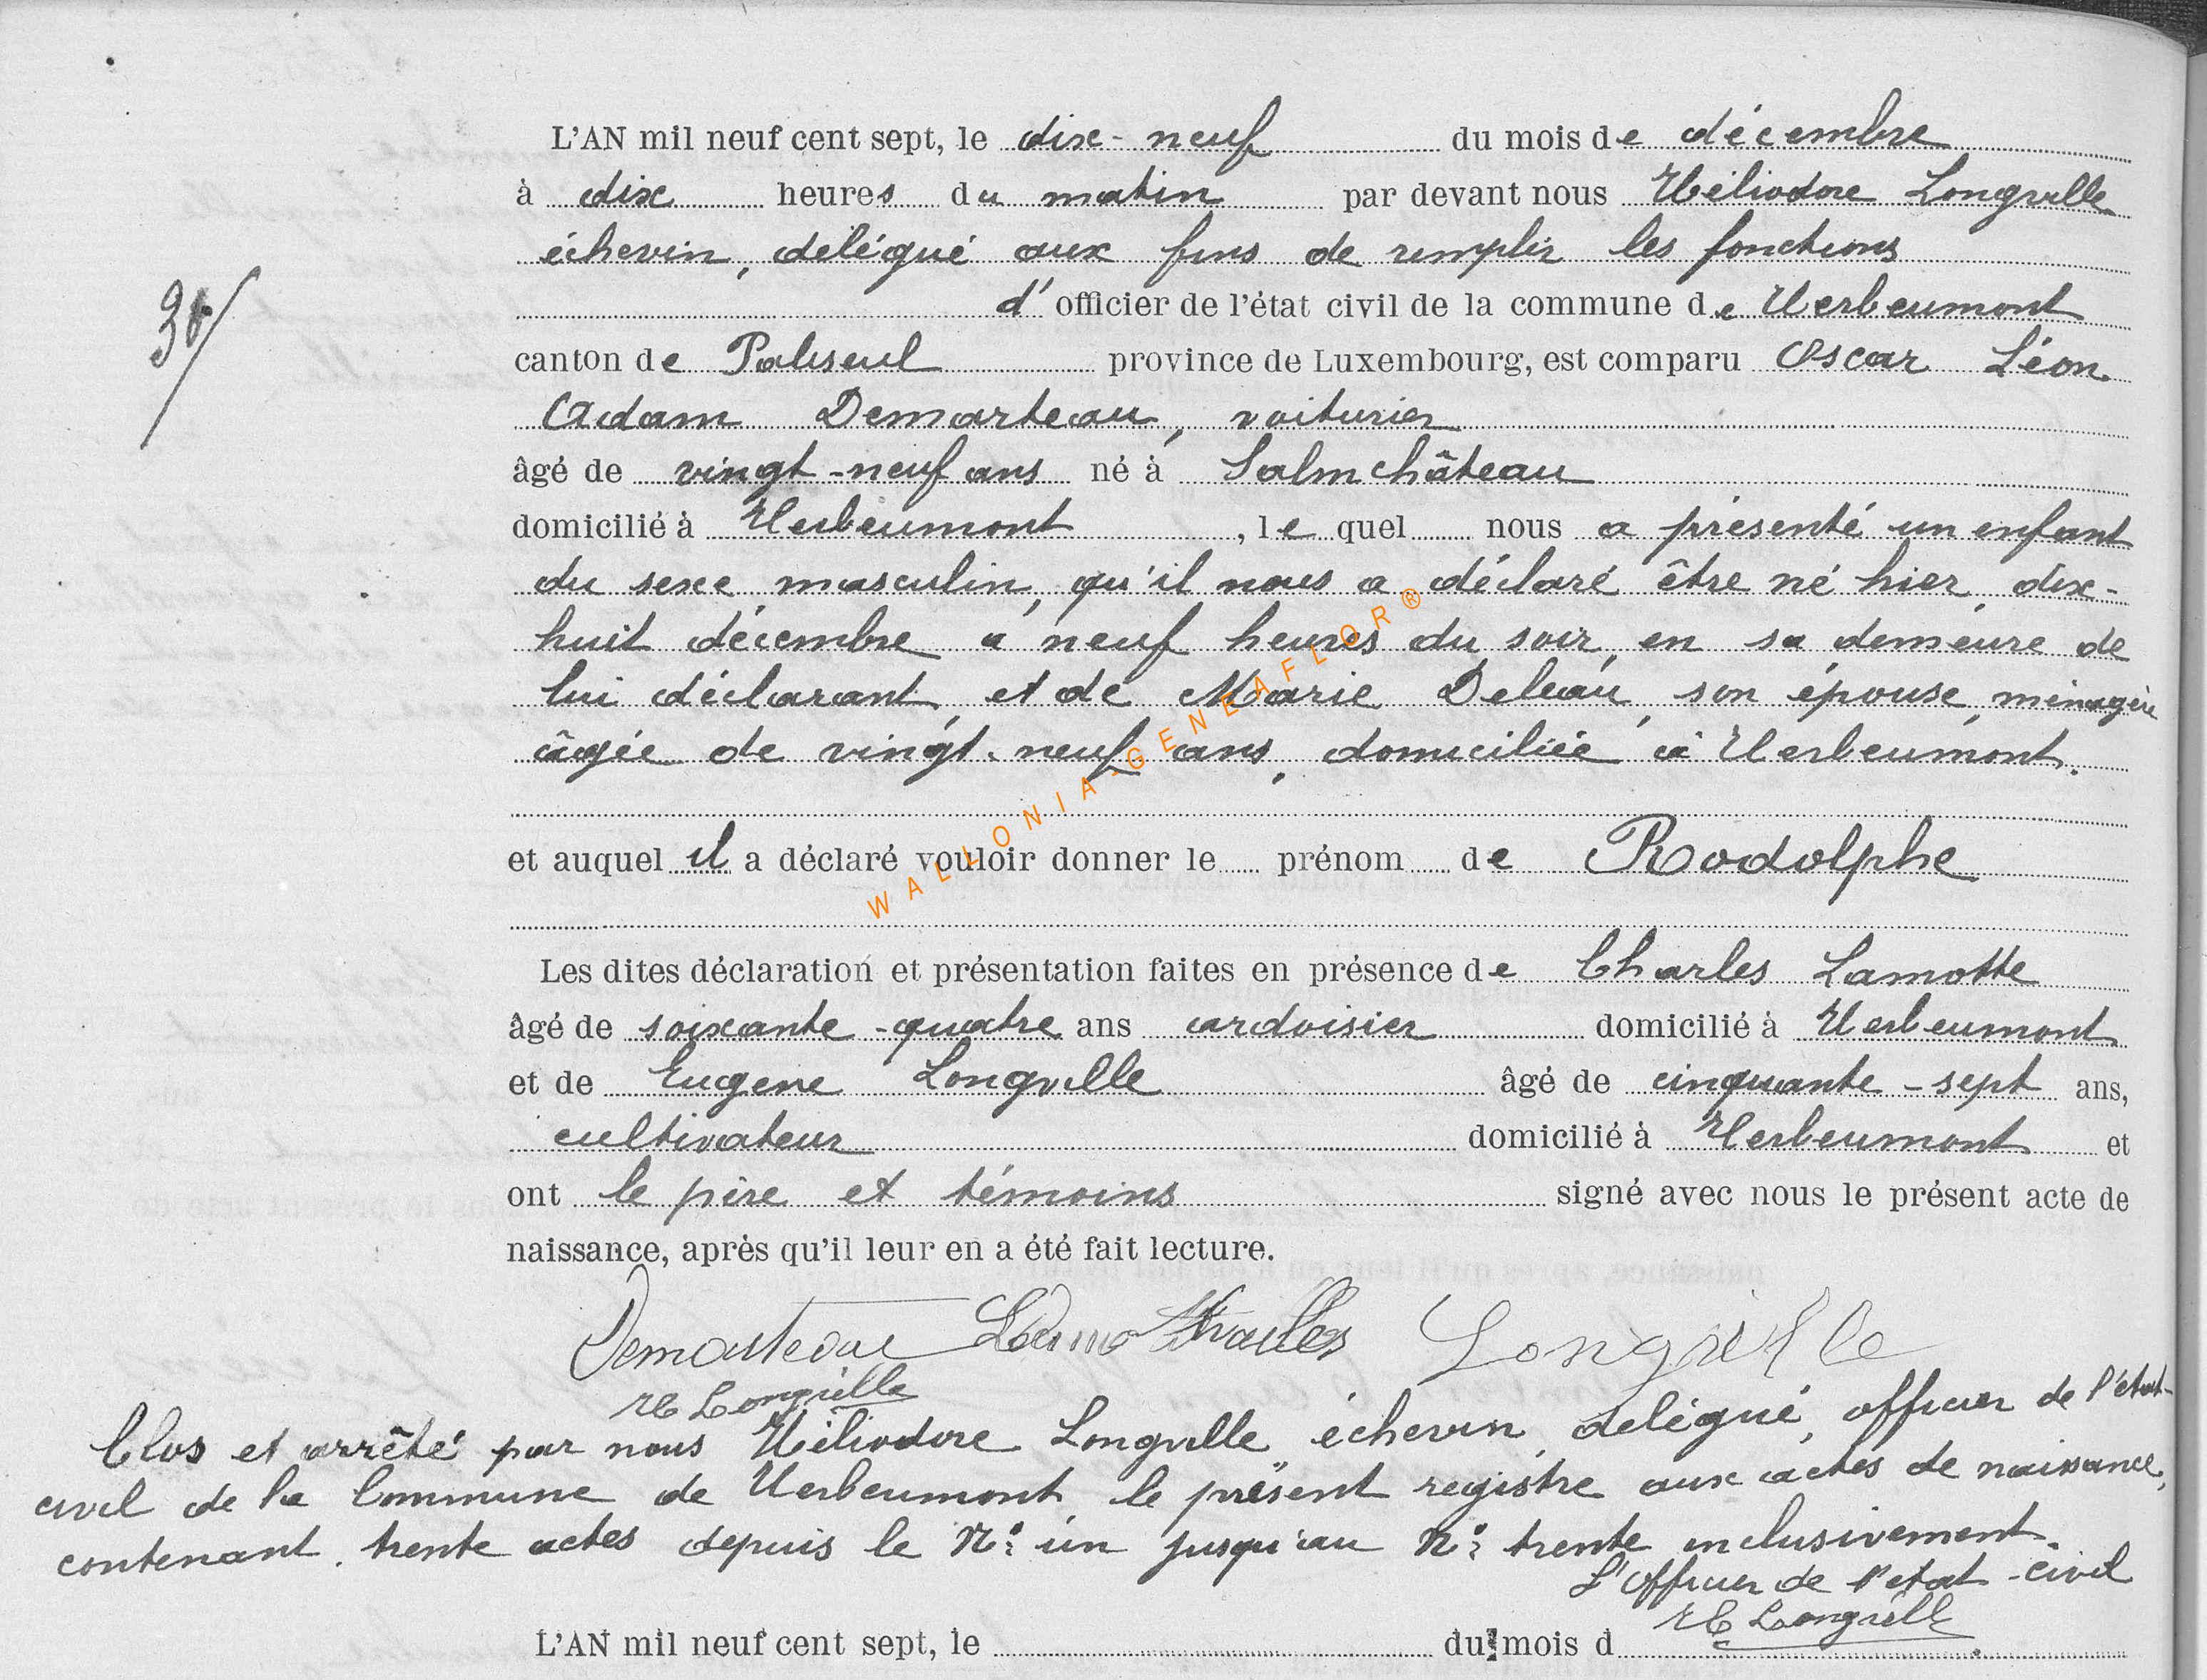 L'AN mil neuf cent sept, le dix-neuf du mois de décembre
à dix heures du matin par devant nous Héliodore Longville
échevin, délégué aux fins de remplir les fonctions
d'officier de l'état civil de la commune de Herbeumont
30/
canton de Paliseul province de Luxembourg, est comparu Oscar Léon
Adam Demarteau, voiturier
âgé de vingt-neuf ans né à Salmchâteau
domicilié à Herbeumont, le quel nous a présenté un enfant
du sexe masculin, qu'il nous a déclaré être né hier, dix-
huit décembre à neuf heures du soir, en sa demeure de
lui déclarant, et de Marie Deleau, son épouse, ménagère
âgée de vingt-neuf ans, domiciliée à Herbeumont.
WALLONIA-GENEAFLOR®
et auquel il a déclaré vouloir donner le prénom de Rodolphe
Les dites déclaration et présentation faites en présence de Charles Lamotte
âgé de soixante-quatre ans ardoisier domicilié à Herbeumont
et de Eugene Longville âgé de cinquante-sept ans,
cultivateur domicilié à Herbeumont et
ont le père et témoins signé avec nous le présent acte de
naissance, après qu'il leur en a été fait lecture.
Demarteau Longville
H Longville
Clos et arrêté par nous Héliodore Longville échevin, delégué, officier de l'état-
civil de la Commune de Herbeumont le présent registre aux actes de naissance,
contenant trente actes depuis le N° un jusqu'au N° trente inclusivement.
L'Officier de l'etat-civil
H Longville
L'AN mil neuf cent sept, le du mois d